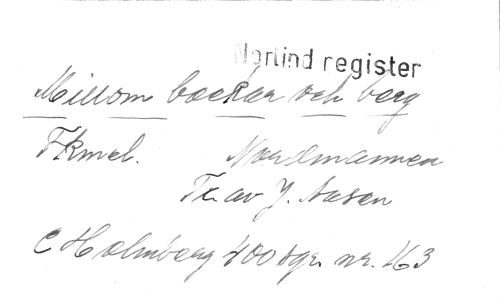 Norlind register
Millom backar och berg
Fkmel. Nordmannen
Tr. av J. Aasen
C Holmberg 400 sgr nr. 163